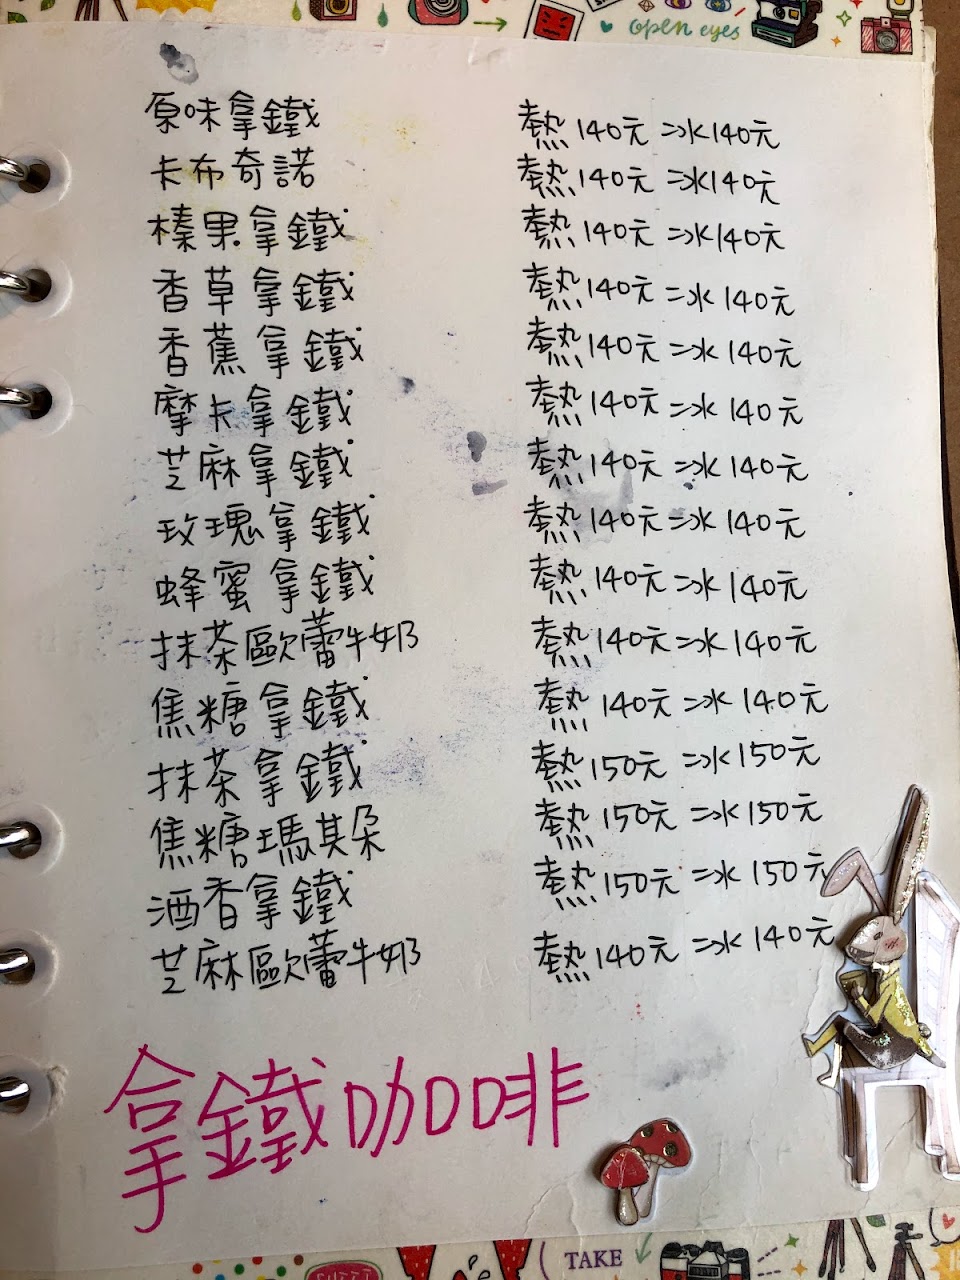 open eyes
原味拿鐵 熱140元 冰140元
卡布奇諾 熱140元 冰140元
榛果拿鐵 熱140元 冰140元
香草拿鐵 熱140元 冰140元
香蕉拿鐵 熱140元 冰140元
摩卡拿鐵 熱140元 冰140元
芝麻拿鐵 熱140元 冰140元
玫瑰拿鐵 熱140元 冰140元
蜂蜜拿鐵 熱140元 冰140元
抹茶歐蕾牛奶 熱140元 冰140元
焦糖拿鐵 熱140元 冰140元
抹茶拿鐵 熱150元 冰150元
焦糖瑪其朵 熱150元 冰150元
酒香拿鐵 熱150元 冰150元
芝麻歐蕾牛奶 熱140元 冰140元
拿鐵咖啡
TAKE